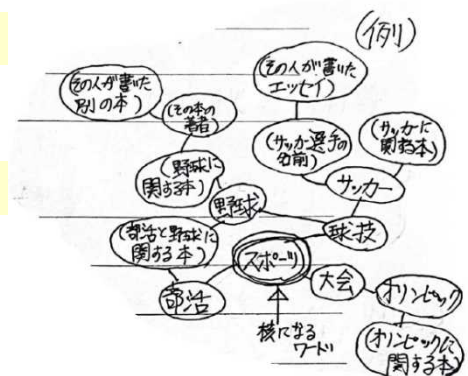 (例)
(その人が書いた
エッセイ)
(その人が書いた
別の本)
(その本の
著者)
(サッカー選手の
名前)
(サッカーに
関する本)
(野球に
関する本)
サッカー
野球
球技
(部活と野球に
関する本)
スポーツ
大会
オリンピック
部活
核になる
ワード!
(オリンピックに
関する本)